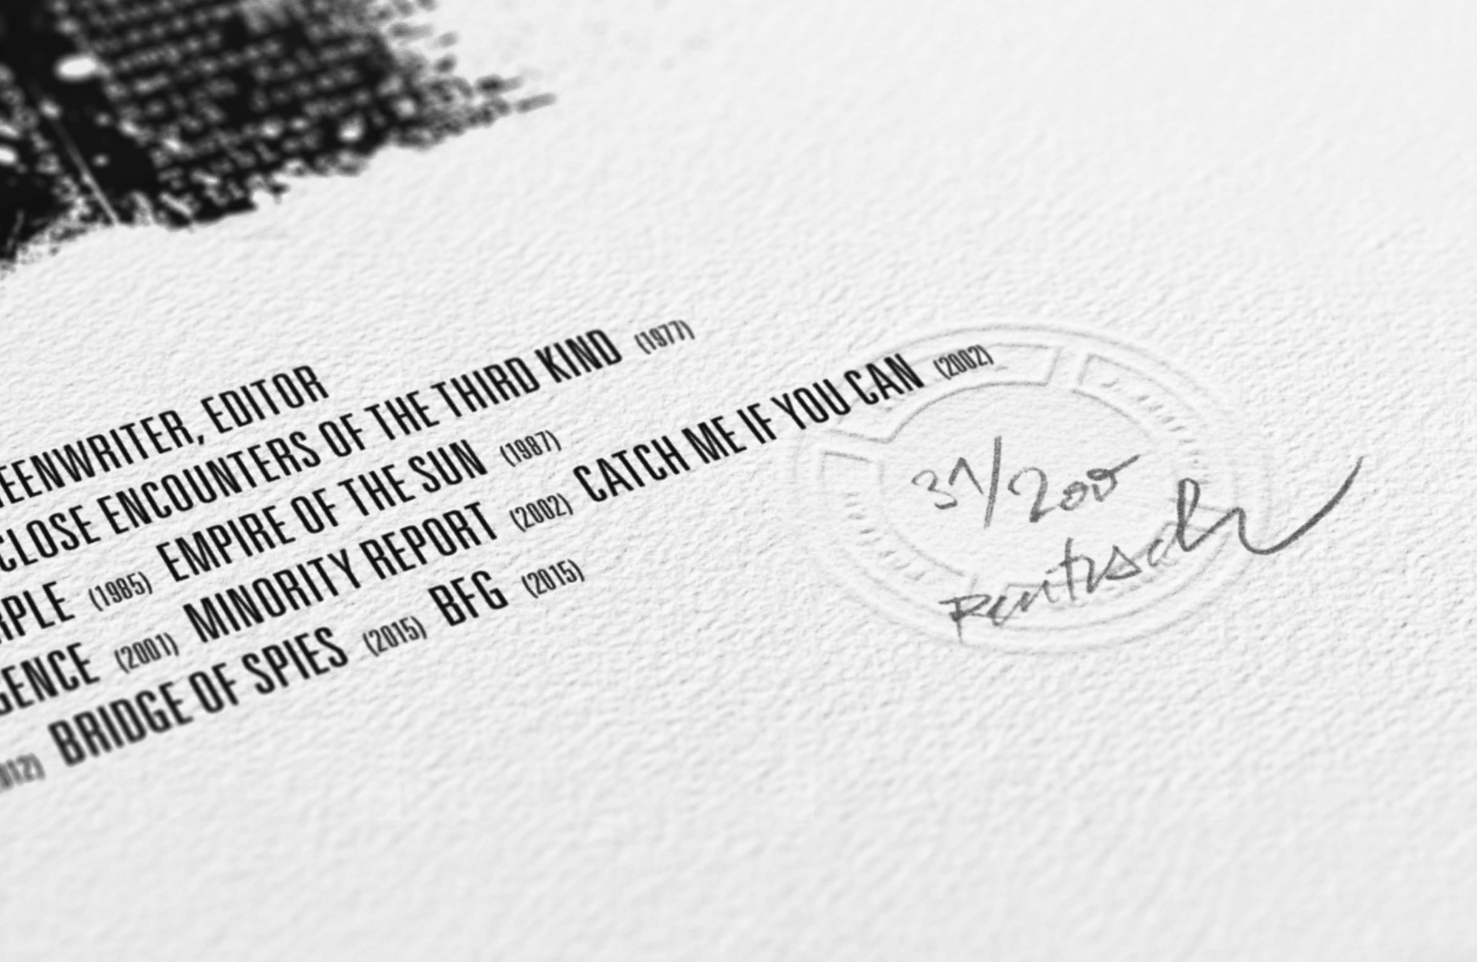 EENWRITER, EDITOR
CLOSE ENCOUNTERS OF THE THIRD KIND (1977)
RPLE (1985) EMPIRE OF THE SUN (1987)
GENCE (2001) MINORITY REPORT (2002) CATCH ME IF YOU CAN (2002)
012) BRIDGE OF SPIES (2015) BFG (2015)
31/200